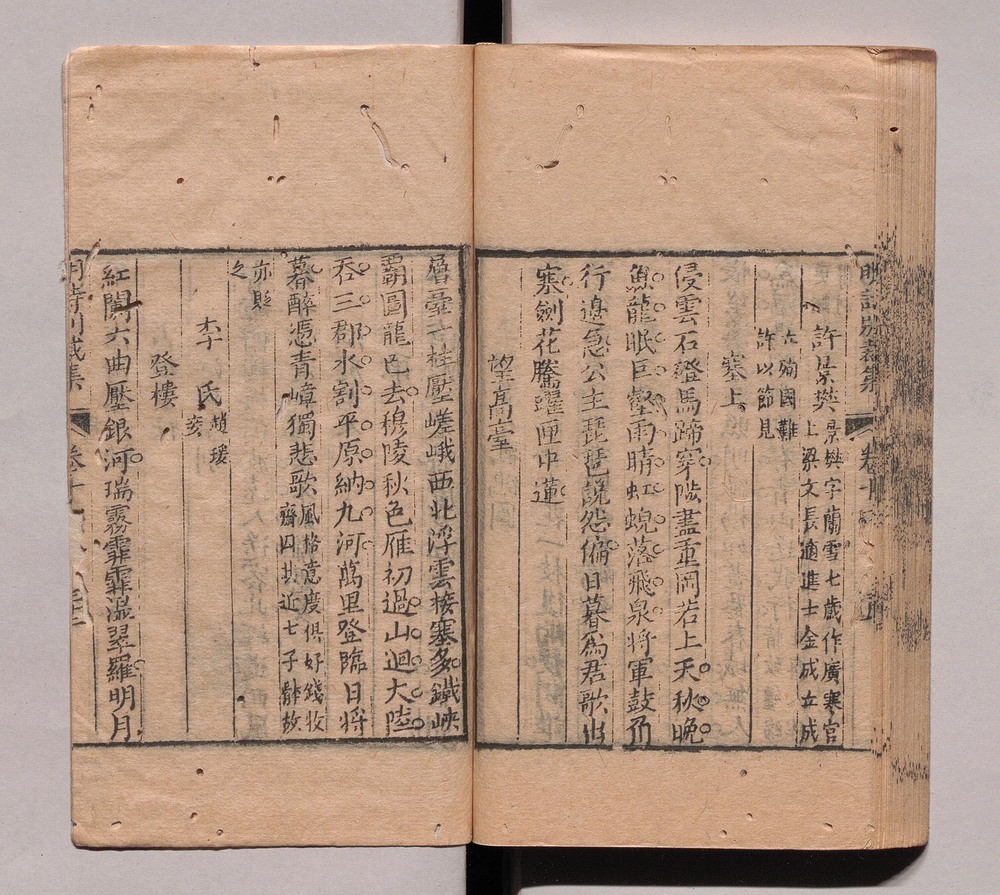 明詩別裁集 卷十二
許景樊 景樊字蘭雪七歲作廣寒宮
上梁文長適進士金成立成
立殉國難
許以節見
塞上
侵雲石磴馬蹄穿陟盡重岡若上天秋晚
魚龍眠巨壑雨晴虹蜺落飛泉將軍鼓角
行邊急公主琵琶說怨偏日暮為君歌出
塞劍花騰躍匣中蓮
望高臺
層臺一柱壓嵯峨西北浮雲接塞多鐵峽
霸圖龍已去穆陵秋色雁初過山迴大陸
吞三郡水割平原納九河萬里登臨日將
暮醉憑青嶂獨悲歌 風格意度俱好錢牧
齋因其近七子體故
亦貶
之
李氏 趙瑗
妾
登樓
紅闌六曲壓銀河瑞霧霏霏溼翠羅明月
明詩別裁集 卷十二